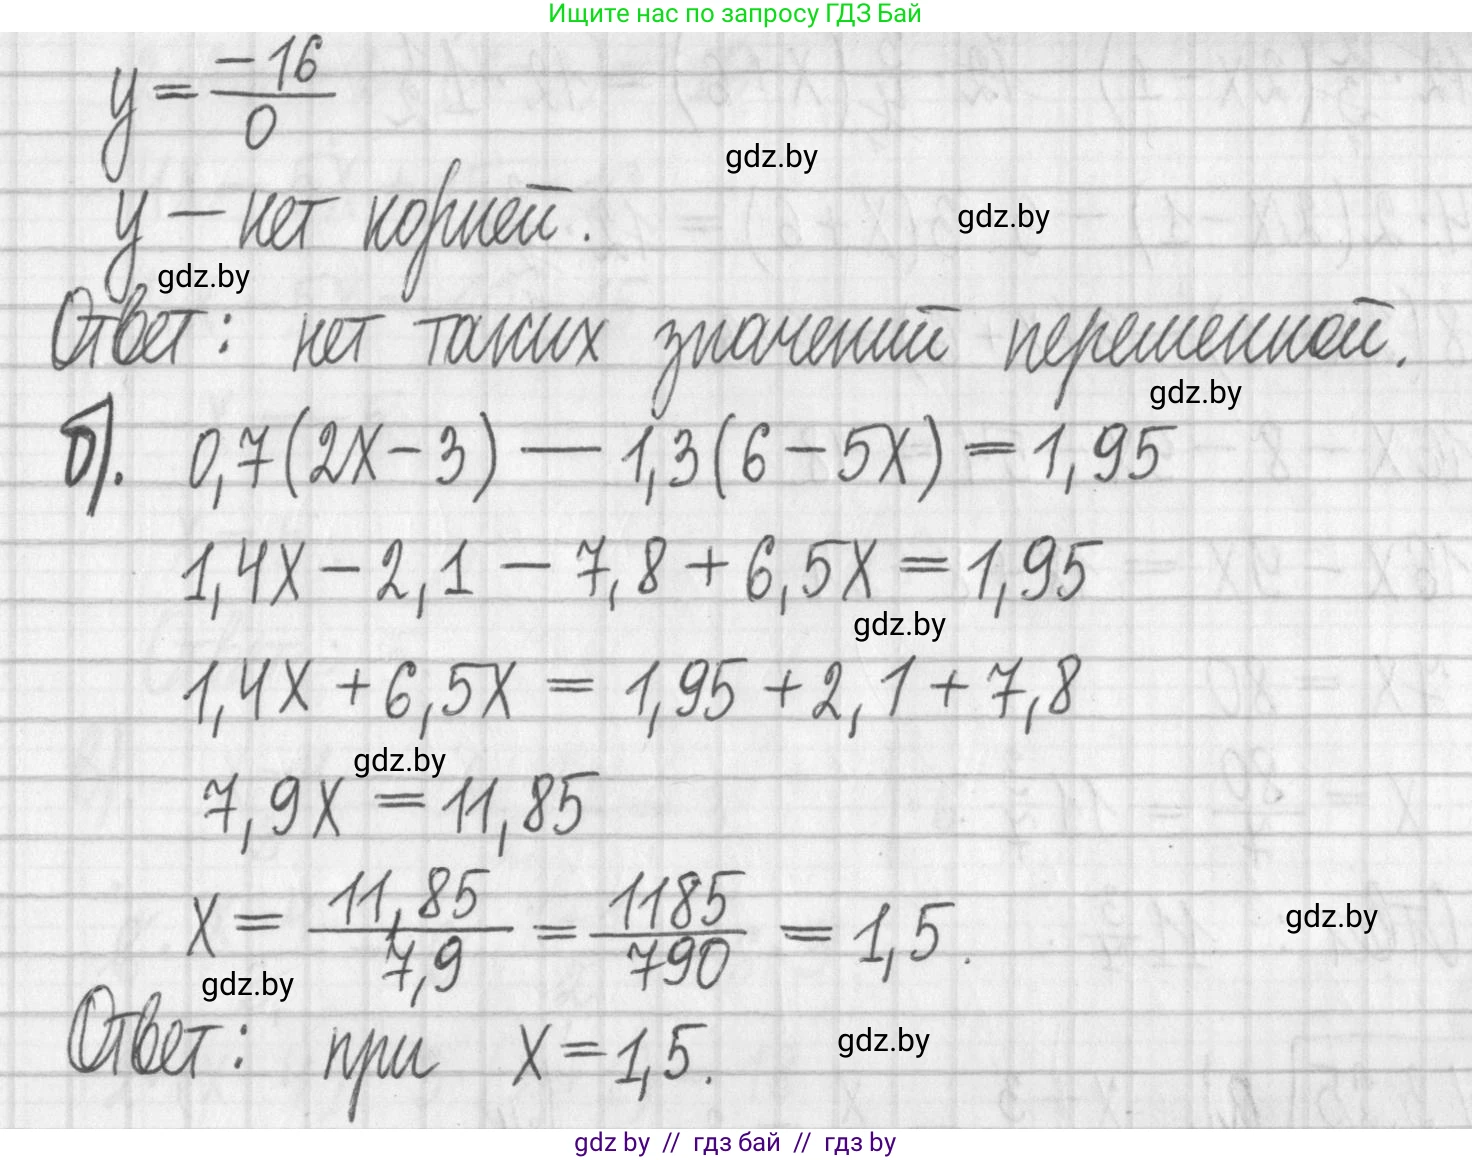 Ищите нас по запросу ГДЗ Бай
y = -16/0
gdz.by
y — нет корней.
gdz.by
gdz.by
Ответ: нет таких значений переменной.
gdz.by
б). 0,7(2x - 3) — 1,3(6 - 5x) = 1,95
1,4x - 2,1 - 7,8 + 6,5x = 1,95
gdz.by
1,4x + 6,5x = 1,95 + 2,1 + 7,8
gdz.by
7,9x = 11,85
x = 11,85/7,9 = 1185/790 = 1,5.
gdz.by
gdz.by
Ответ: при x = 1,5.
gdz.by
gdz by // гдз бай // гдз by